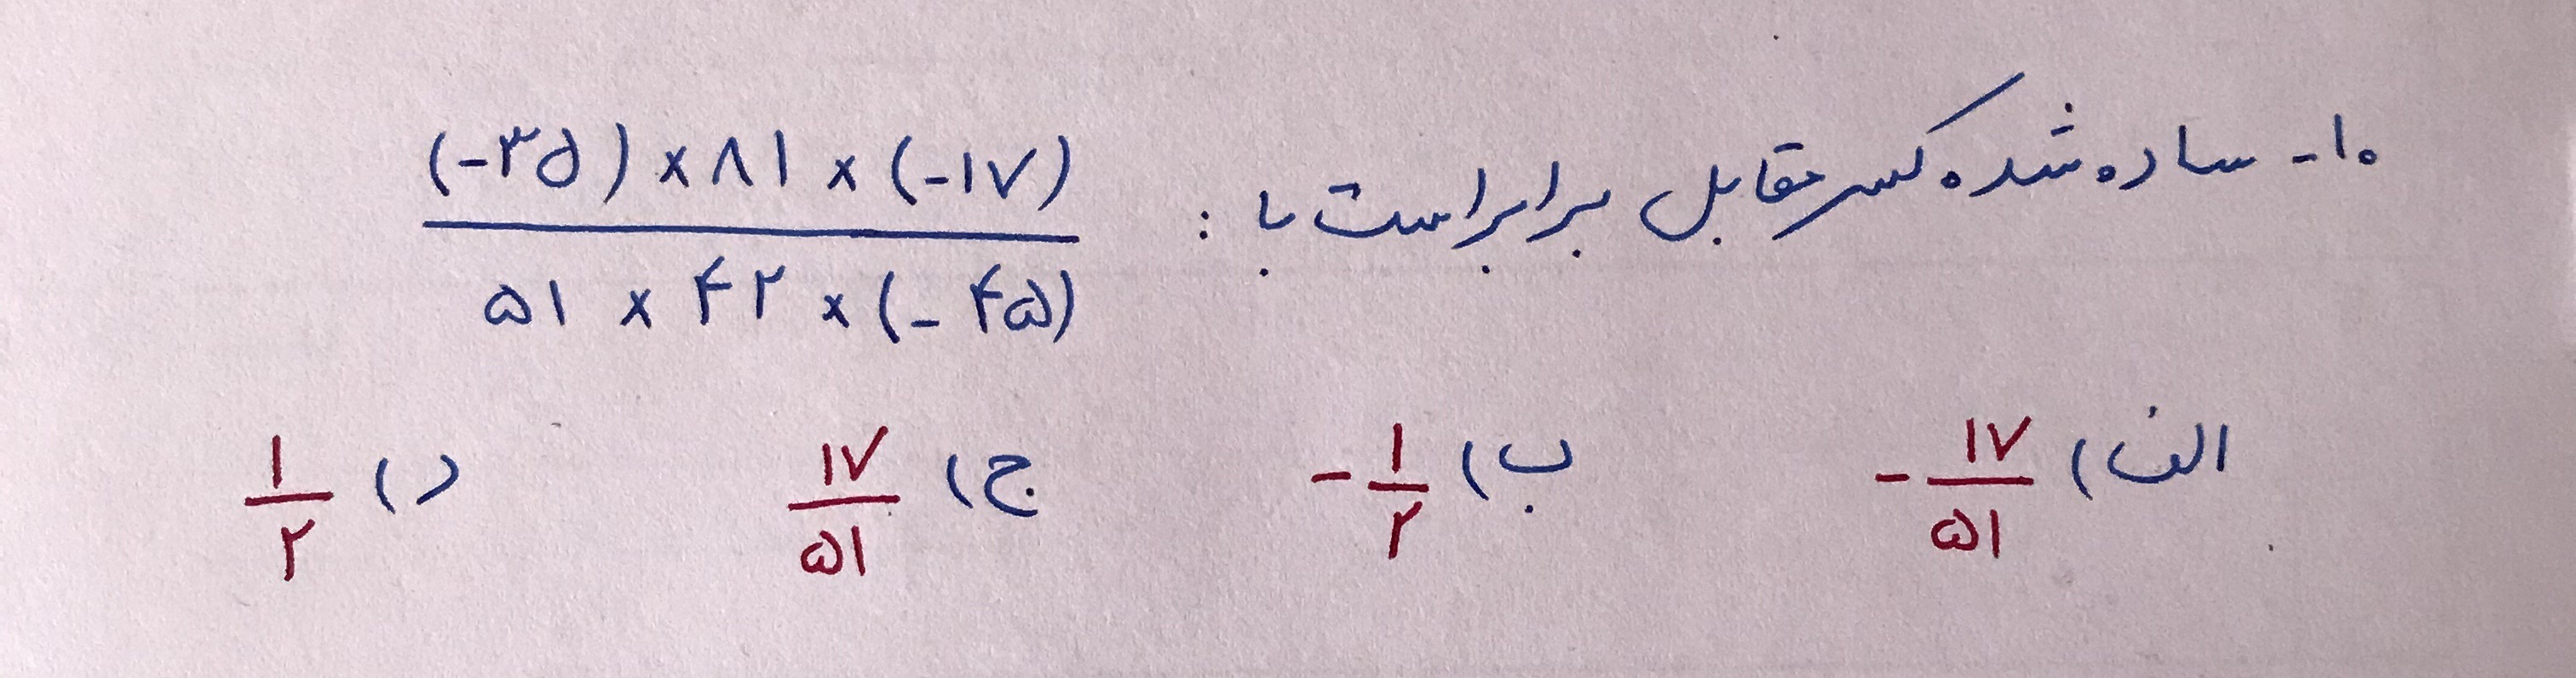 ۱۰- ساده شده کسر مقابل برابر است با :
(-۳۵) × ۸۱ × (-۱۷)
۵۱ × ۴۲ × (-۴۵)
الف) -۱۷/۵۱ ب) -۱/۲ ج) ۱۷/۵۱ د) ۱/۲